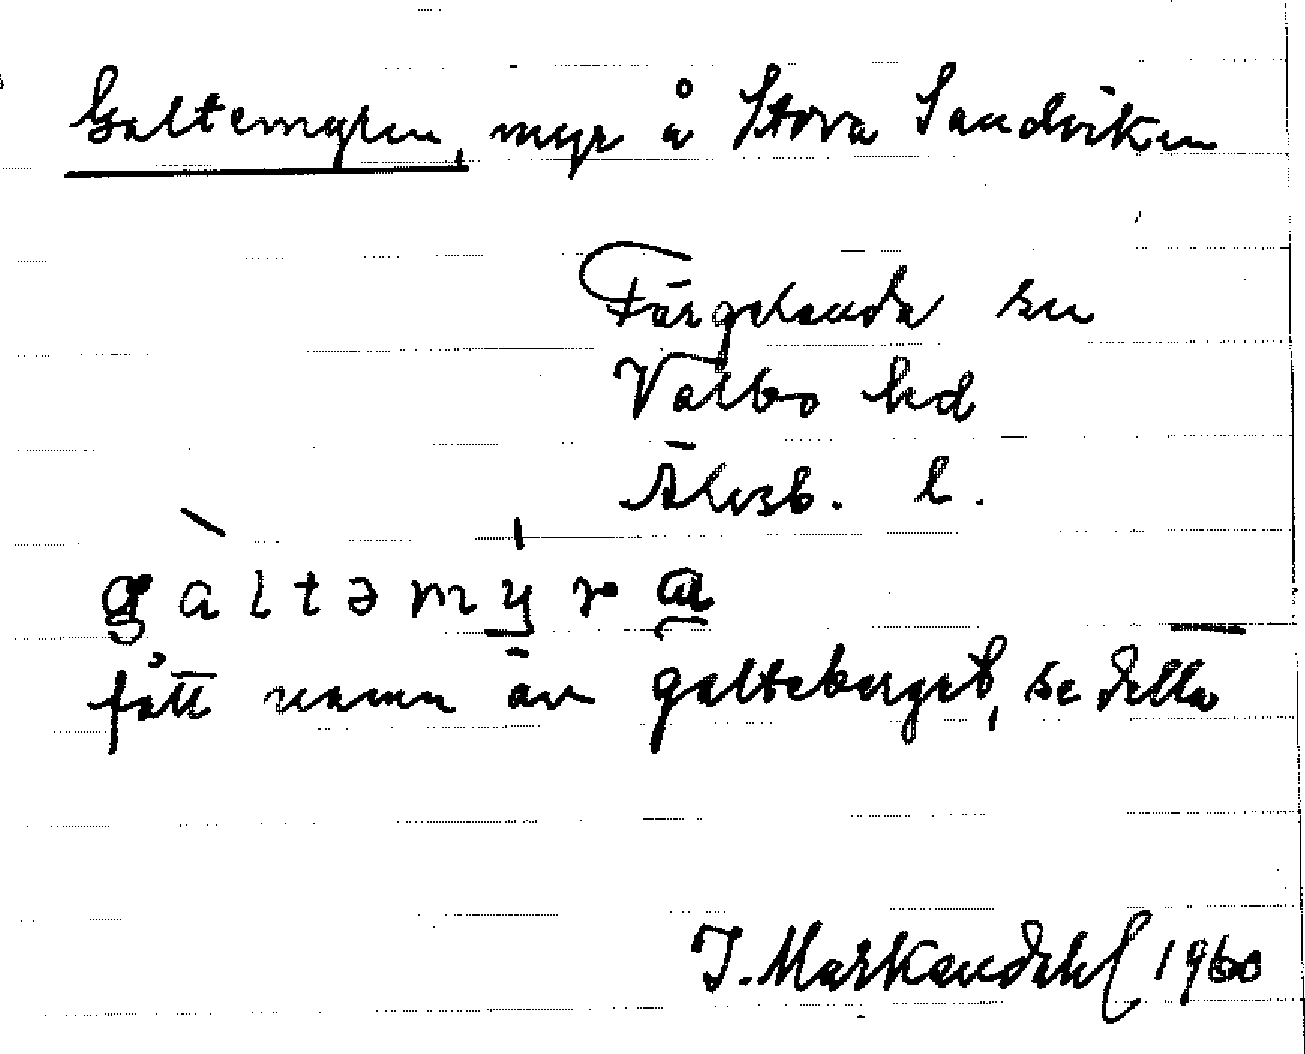 Galtemyren, myr å Stora Sandviken
Färgelanda sn
Valbo hd
Älvsb. l.
gàltəmy̠ra
fått namn av galteberget, se detta
J. Markendahl 1960